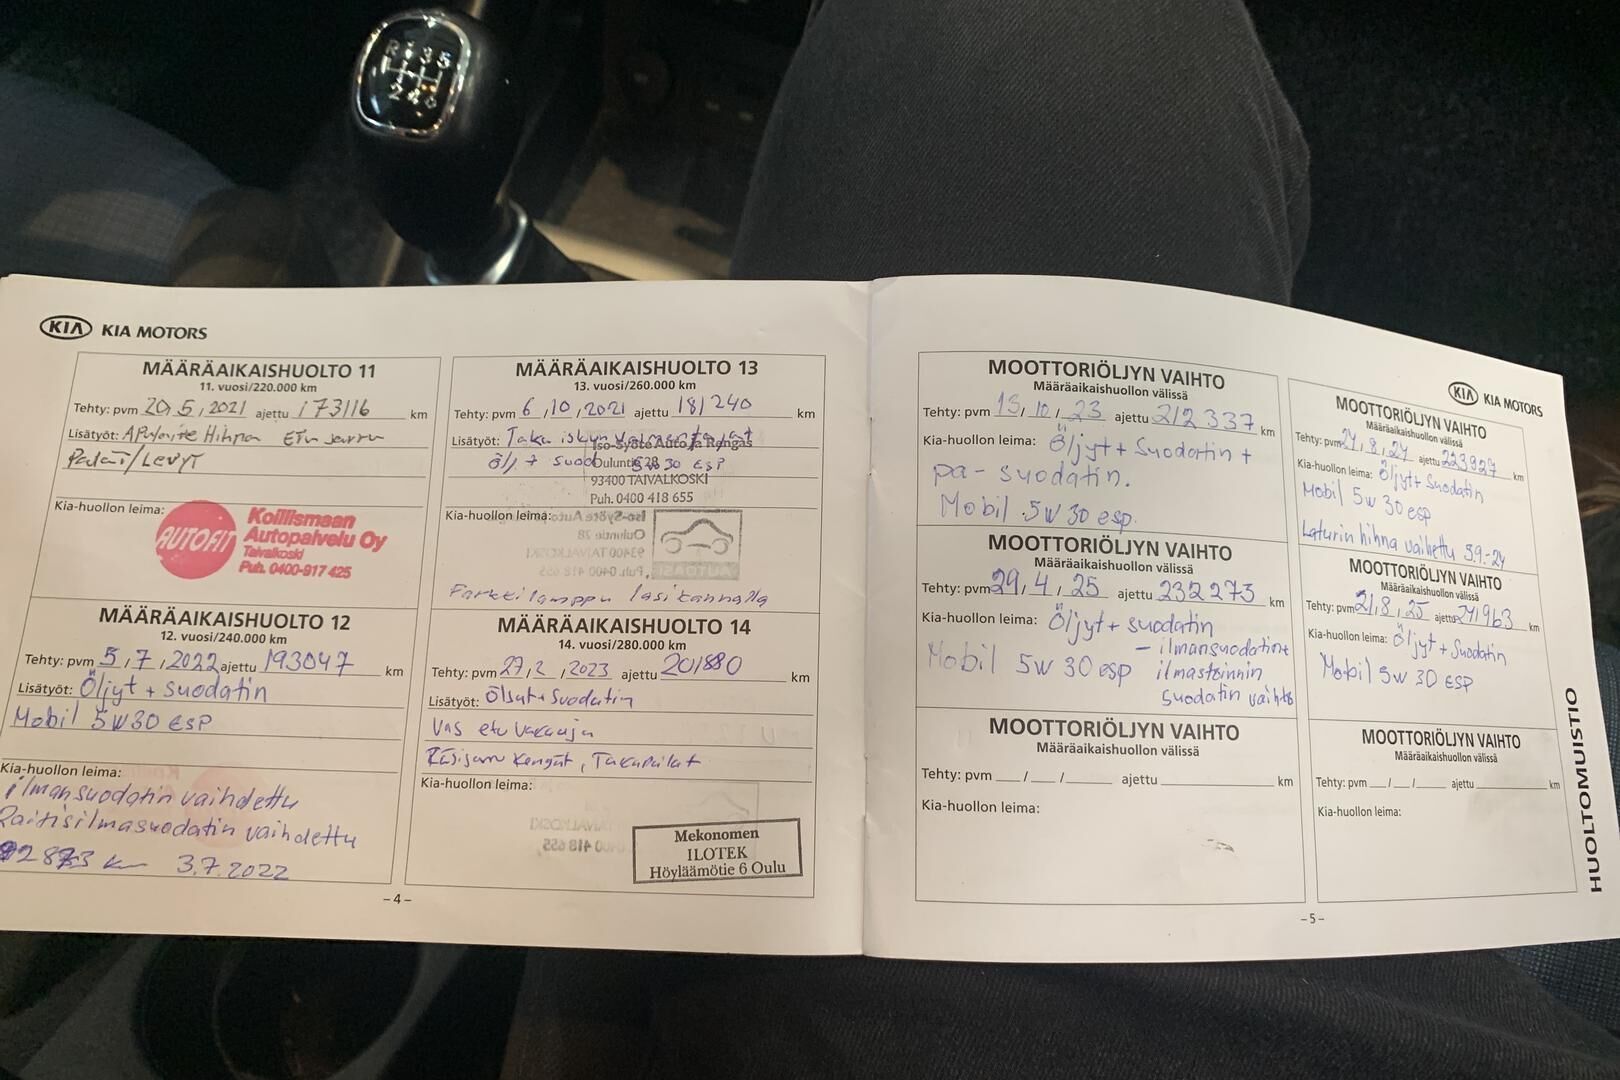 R 1 3 5
2 4 6
KIA KIA MOTORS
MÄÄRÄAIKAISHUOLTO 11
11. vuosi/220.000 km
Tehty: pvm 20,5,2021 ajettu 173116 km
Lisätyöt: APulaite Hihna Etu jarru
Palat/Levyt
Kia-huollon leima:
AUTOFIT
Koillismaan
Autopalvelu Oy
Taivalkoski
Puh. 0400-917 425
MÄÄRÄAIKAISHUOLTO 12
12. vuosi/240.000 km
Tehty: pvm 5,7,2022 ajettu 193047 km
Lisätyöt: Öljyt + suodatin
Mobil 5W30 ESP
Kia-huollon leima:
ilmansuodatin vaihdettu
Raitisilmasuodatin vaihdettu
km 3.7.2022
MÄÄRÄAIKAISHUOLTO 13
13. vuosi/260.000 km
Tehty: pvm 6,10,2021 ajettu 181240 km
Lisätyöt: Taka iskun
Iso-Syöte Auto ja Rengas
ölj + suod 5w30 ESP
Ouluntie 28
93400 TAIVALKOSKI
Puh. 0400 418 655
Kia-huollon leima:
Iso-Syöte Auto ja Rengas
Ouluntie 28
93400 TAIVALKOSKI
Puh. 0400 418 655
AUTOASI
Parkkilamppu lasikannalla
MÄÄRÄAIKAISHUOLTO 14
14. vuosi/280.000 km
Tehty: pvm 27,2,2023 ajettu 201880 km
Lisätyöt: Öljyt + Suodatin
Vas etu vakaaja
Käsijarru kengät, Takapalat
Kia-huollon leima:
Mekonomen
ILOTEK
Höyläämötie 6 Oulu
-4-
MOOTTORIÖLJYN VAIHTO
Määräaikaishuollon välissä
Tehty: pvm 13,10,23 ajettu 212337 km
Kia-huollon leima: Öljyt + Suodatin +
pa-suodatin.
Mobil 5w30 esp.
MOOTTORIÖLJYN VAIHTO
Määräaikaishuollon välissä
Tehty: pvm 29,4,25 ajettu 232273 km
Kia-huollon leima: Öljyt + suodatin
- ilmansuodatin+
Mobil 5w30 esp ilmastoinnin
suodatin vaihto
MOOTTORIÖLJYN VAIHTO
Määräaikaishuollon välissä
Tehty: pvm __/__/____ ajettu ________ km
Kia-huollon leima:
KIA KIA MOTORS
MOOTTORIÖLJYN VAIHTO
Määräaikaishuollon välissä
Tehty: pvm 27,8,24 ajettu 223927 km
Kia-huollon leima: Öljyt + Suodatin
Mobil 5w30 esp
Laturin hihna vaihettu 5.9.-24
MOOTTORIÖLJYN VAIHTO
Määräaikaishuollon välissä
Tehty: pvm 21,8,25 ajettu 241963 km
Kia-huollon leima: Öljyt + Suodatin
Mobil 5w30 ESP
MOOTTORIÖLJYN VAIHTO
Määräaikaishuollon välissä
Tehty: pvm __/__/____ ajettu ________ km
Kia-huollon leima:
HUOLTOMUISTIO
-5-